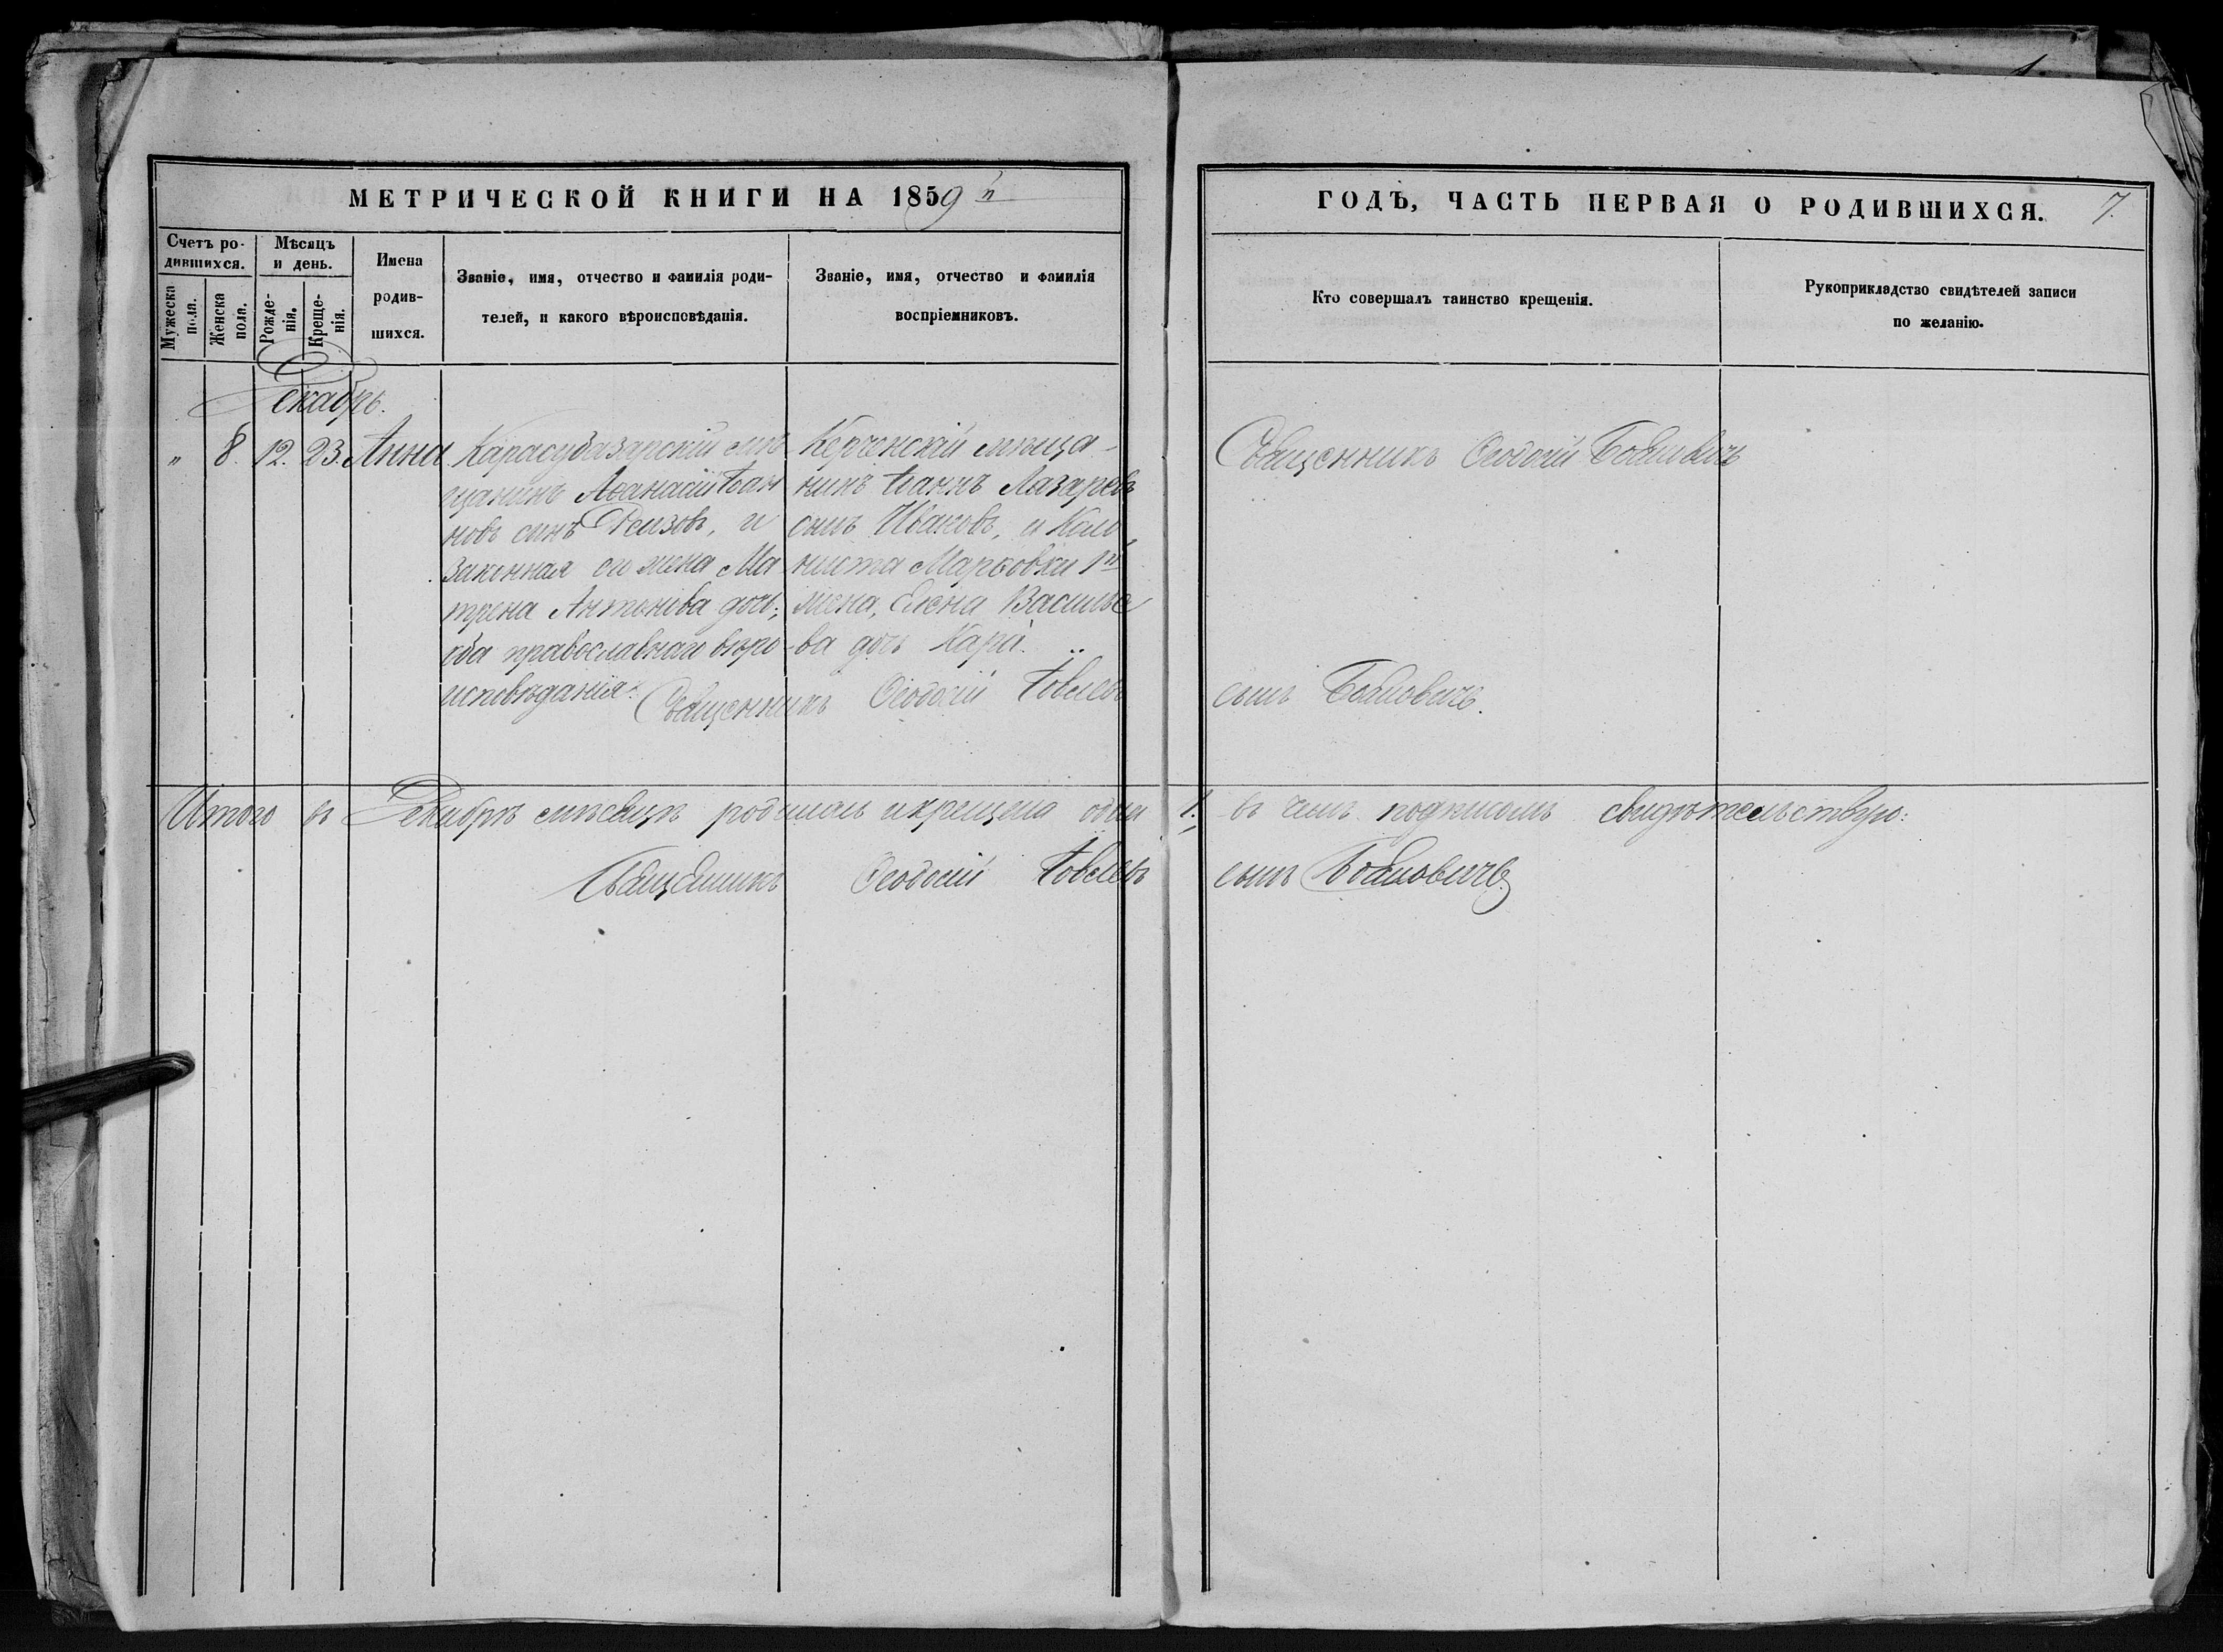 МЕТРИЧЕСКОЙ КНИГИ НА 1859й
ГОДЪ, ЧАСТЬ ПЕРВАЯ О РОДИВШИХСЯ. 7.
Счетъ ро-
дившихся.
Мѣсяцъ
и день.
Мужеска
пола.
Женска
пола.
Рожде-
нія.
Креще-
нія.
Имена
родив-
шихся.
Званіе, имя, отчество и фамилія роди-
телей, и какого вѣроисповѣданія.
Званіе, имя, отчество и фамилія
воспріемниковъ.
Кто совершалъ таинство крещенія.
Рукоприкладство свидѣтелей записи
по желанію.
Декабрь.
" 8. 12. 23. Анна
Карасубазарскій мѣ
щанинъ Аѳанасій Іоан
новъ сынъ Реизовъ, и
законная его жена Ма
трена Антонова дочь;
оба православнаго вѣро
исповѣданія.
Керченскій мѣща-
нинъ Іоаннъ Лазаревъ
сынъ Ивановъ, и Коло
ниста Марковки
жена, Елена Василье
ва дочь Кара.
Священникъ Ѳеодосій
Священникъ Ѳеодосій
сынъ
Итого въ Декабрѣ мѣсяцѣ родилась и крещена одна 1. въ чемъ подписомъ свидѣтельствую:
Священникъ Ѳеодосій
сынъ